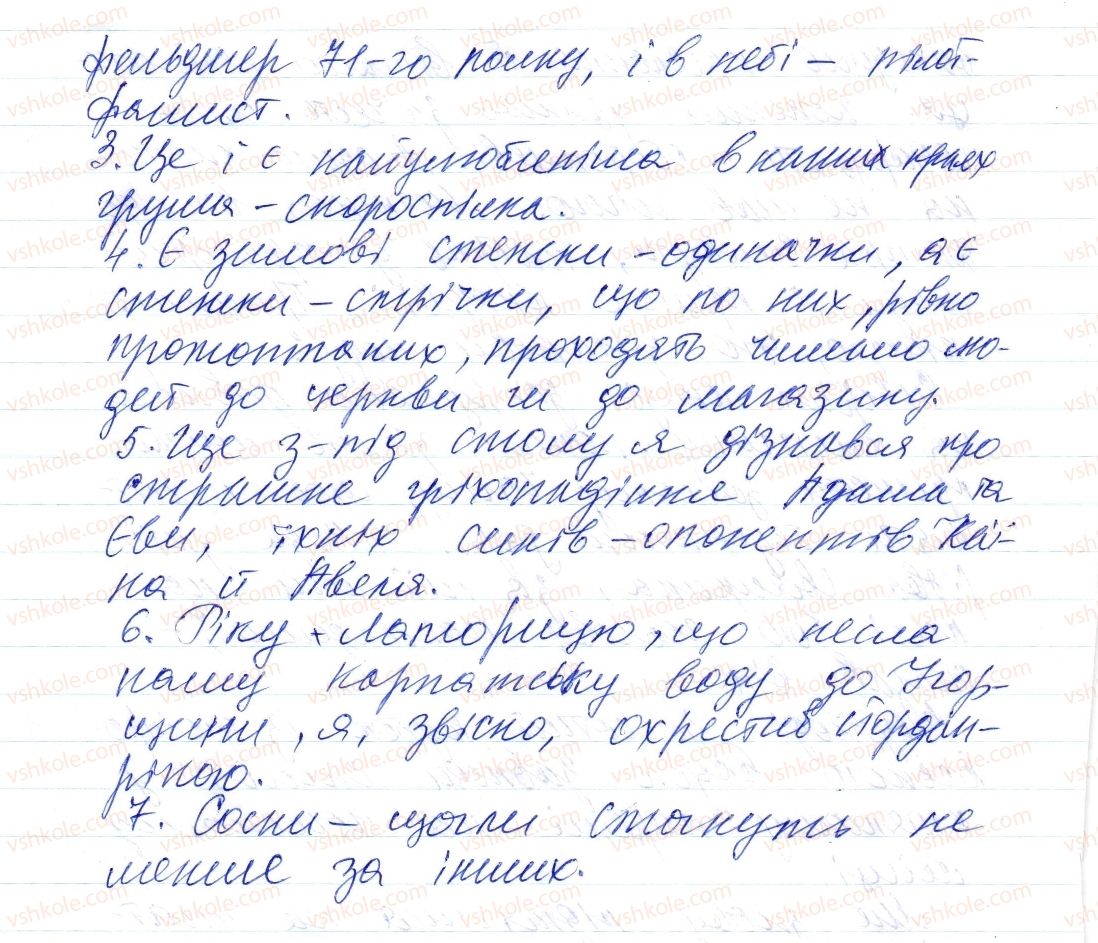 фельдшер 71-го полку, і в небі – пілот-
фашист.
3. Це і є найулюбленіша в наших краях
груша – скороспілка.
4. Є зимові стежки - одиначки, а є
стежки – стрічки, що по них, рівно
протоптаних, проходять чимало лю-
дей до церкви чи до магазину.
5. Ще з-під столу я дізнався про
страшне гріхопадіння Адама та
Єви, їхніх синів – опонентів Каї-
на й Авеля.
6. Ріку - Латорицю, що несла
нашу карпатську воду до Угор-
щини, я, звісно, охрестив Йордан-
рікою.
7. Сосни – щогли стануть не
менше за інших.